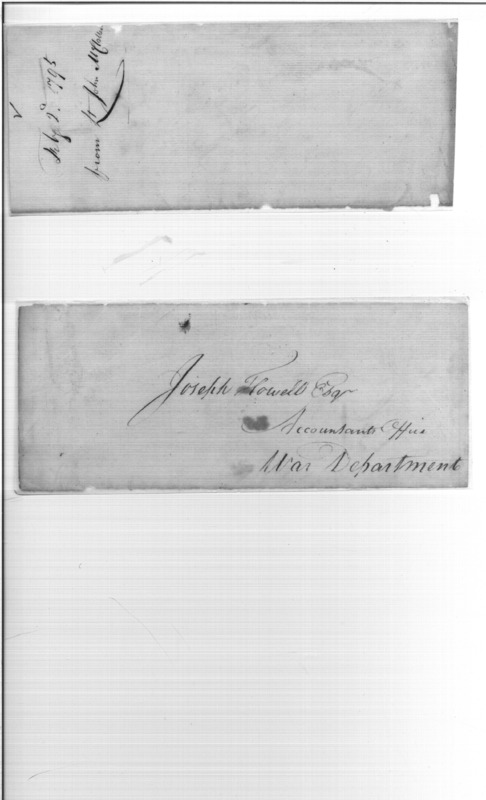 Feby 2d. 1795
from Lt John
Joseph Howell Esqr
Accountants Office
War Department